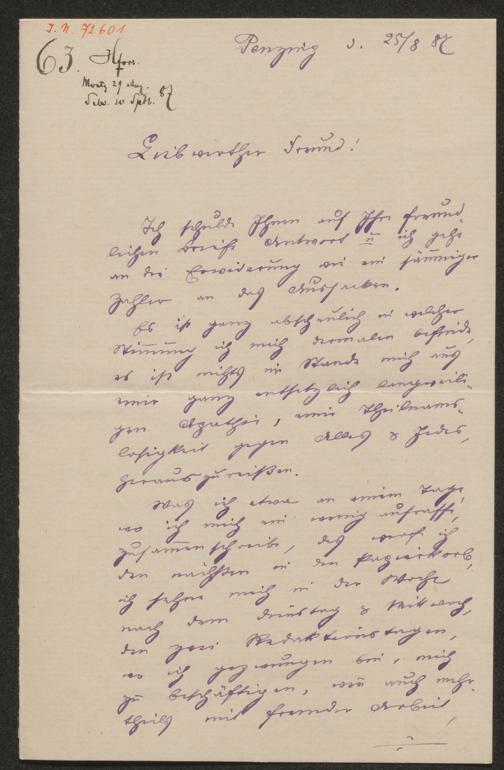 I. N. 72601
63.
Penzing d. 25/8 87
Montg 29 Aug.
87
Liebwerther Freund!
Ich schulde Ihnen auf Ihre freund-
lichen Briefe Antwort u ich gehe
an die Erwiederung wie ein säumiger
Zahler an das
Es ist ganz abscheulich in welcher
Stimmung ich mich dermalen befinde,
es ist nichts im Stande mich aus
einer ganz entsetzlich langweili-
gen Apathie, einer Theilnams-
losigkeit gegen Alles & Jedes,
herauszureißen.
Was ich etwa an einem Tage,
wo ich mich ein wenig aufraffe,
zusammenschreibe, das werf ich
den nächsten in den Papierkorb,
ich sehne mich in der Woche
nach dem Dienstag & Mittwoch,
den zwei Redakteurstagen,
wo ich gezwungen bin, mich
zu beschäftigen, wenn auch mehr-
theils mit fremder Arbeit,